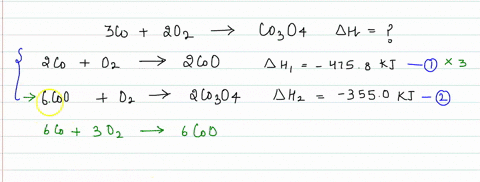 3Co + 2O₂ → Co₃O₄ ΔH = ?
2Co + O₂ → 2CoO ΔH₁ = -475.8 KJ — ① × 3
6CoO + O₂ → 2Co₃O₄ ΔH₂ = -355.0 KJ — ②
6Co + 3O₂ → 6CoO